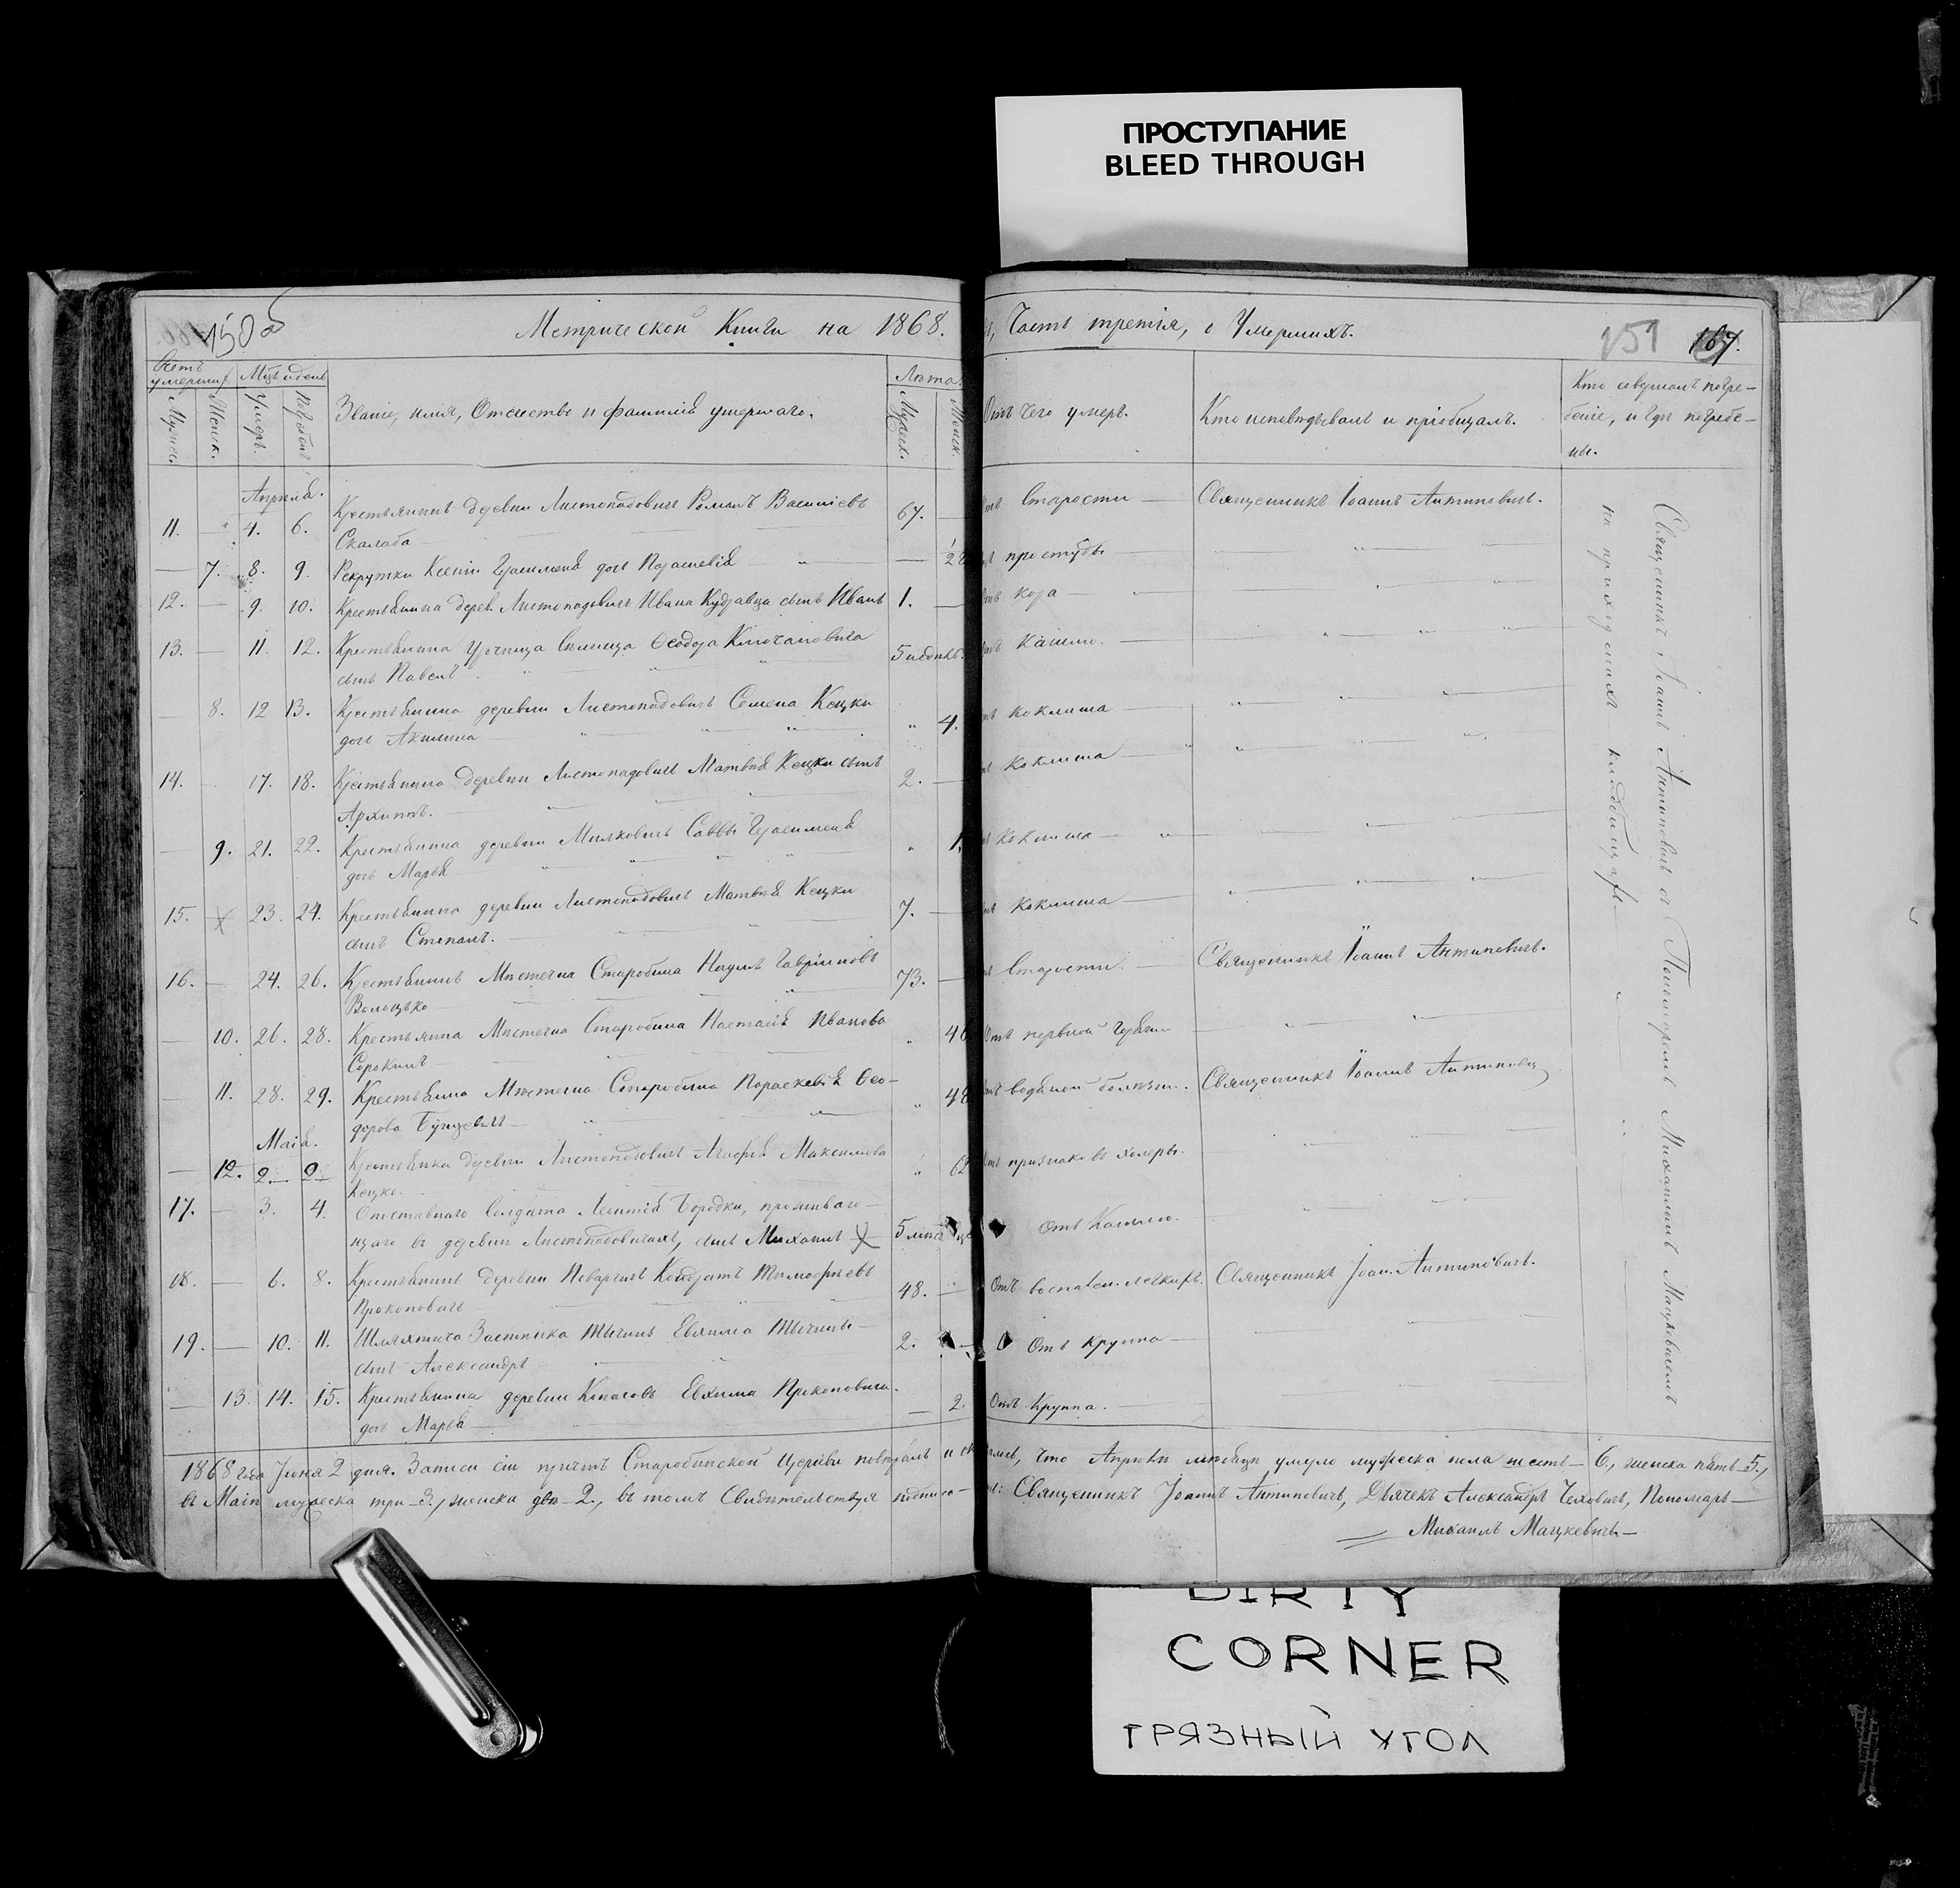 ПРОСТУПАНИЕ
BLEED THROUGH
150 об
Метрической Книги на 1868.
Часть третія, о Умершихъ.
151 167.
Счетъ умершихъ
Мцъ и день
Звание, имя, Отчество и фамилія умершаго.
Лѣта.
Отъ чего умеръ.
Кто исповѣдывалъ и пріобщалъ.
Кто совершалъ погре-
беніе, и гдѣ погребе-
ны.
Мужес.
Женск.
Умеръ.
Мужеск.
Женск.
Апрѣля.
11. 4. 6. Крестьянинъ деревни Листопадовичъ Романъ Василіевъ 67. Отъ Старости — Священникъ Іоаннъ Антиповичъ.
Скалаба
7. 8. 9. Рекрутки Ксеніи дочь Параскевія простуды
12. 9. 10. Крестьянина дерев. Листопадовичъ Ивана Кудравца сынъ Иванъ 1. кора
13. 11. 12. Крестьянина Урочища Ѳеодора Ключановича 5 Кашлю.
сынъ Павелъ
8. 12 13. Крестьянина деревни Листопадовичъ Семена Кецки 4. коклюша
дочь Акилина
14. 17. 18. Крестьянина деревни Листопадовичъ Матвѣя Кецки сынъ 2. Коклюша
Архиппъ.
9. 21. 22. Крестьянина деревни Милковичъ Саввы Герасимени 1. коклюша
дочь Марья
15. 23. 24. Крестьянина деревни Листопадовичъ Матвѣя Кецки 7. Коклюша
сынъ Степанъ.
16. 24. 26. Крестьянинъ Мѣстечка Старобина Наумъ Гавріиловъ 73. Старости. Священникъ Іоаннъ Антиповичъ.
10. 26. 28. Крестьянка Мѣстечка Старобина Настасія Иванова 46 Отъ нервной
Сорокинъ
11. 28. 29. Крестьянка Мѣстечка Старобина Параскевія Ѳео- 48 водяной болѣзни. Священникъ Іоаннъ Антипович
дорова
Маія.
12. 2 2 Крестьянка деревни Листопадовичъ Агафія Максимова 62 Отъ признаковъ холеры.
Кецко.
17. 3. 4. Отставнаго Солдата Леонтія Бородки, прожываю-
щаго въ деревни Листопадовичахъ, сынъ Михаилъ 5 Отъ Кашлю.
18. 6. 8. Крестьянинъ деревни Кондратъ Тимофѣевъ 48. Отъ воспален. легкихъ. Священникъ Іоан. Антиповичъ.
Прокоповичъ
19. 10. 11. Шляхтича Застѣнка Тычинъ Евхима Тычины 2. Отъ Круппа
сынъ Александръ
13. 14. 15. Крестьянина деревни Евхима Прокоповича 2. Отъ Круппа.
дочь Марья
Священникъ Іоаннъ Антиповичъ съ Пономаремъ Михаиломъ Мацкевичемъ
на приходскихъ кладбищахъ
1868 года Іюня 2 дня. Записи сіи причтъ Старобинской Церкви повѣрялъ и что Апрѣля мѣсяца умерло мужеска пола шесть 6., женска пять 5.,
въ Маіи мужеска три 3., женска двѣ 2., въ томъ Свидѣтельствуя подписа- Священникъ Іоаннъ Антиповичъ, Дьячекъ Александръ Чеховичъ, Пономарь
Михаилъ Мацкевичъ
DIRTY
CORNER
ГРЯЗНЫЙ УГОЛ